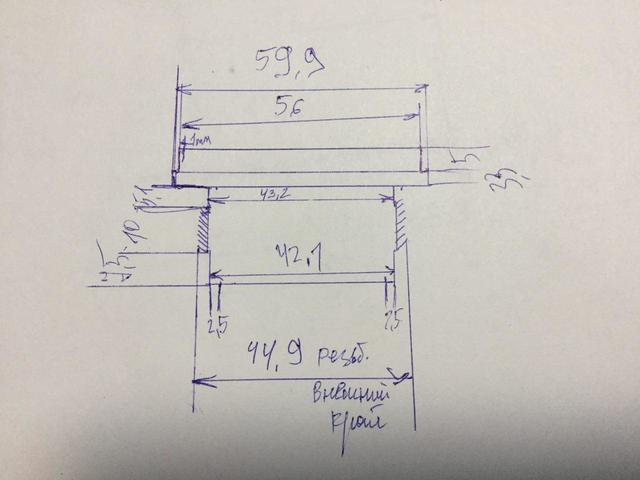 59,9
56
1мм
43,2
5,1
10
42,1
2,5
2,5
44,9 резьб.
внешний
край